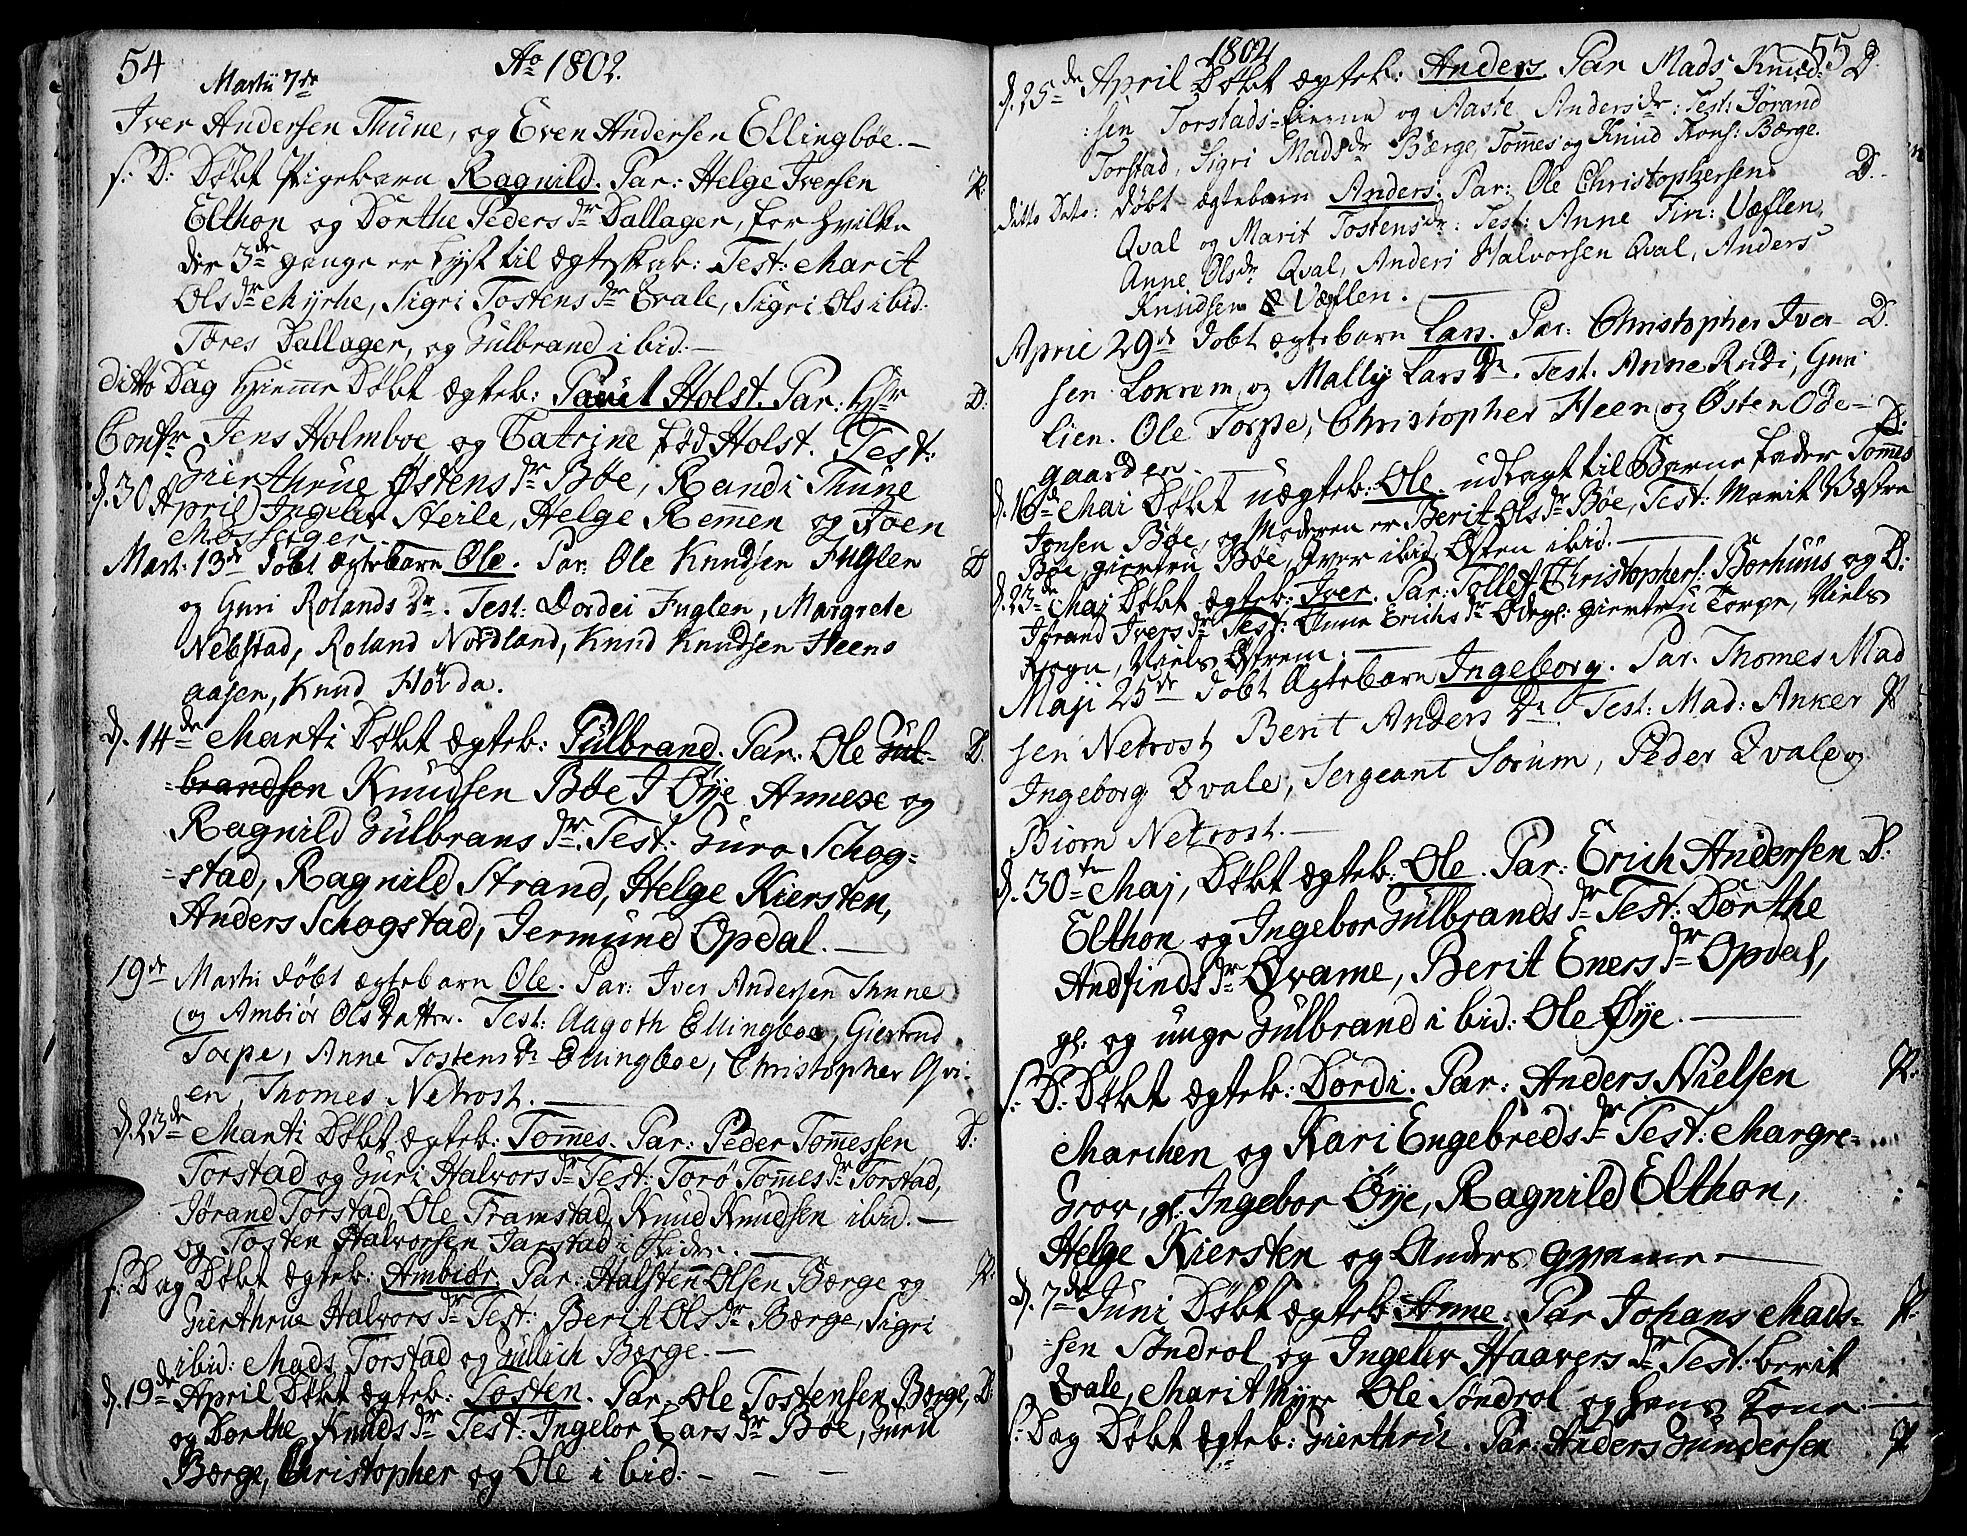 54
Ao 1802.
Martii 7de
Iver Andersen Thune, og Even Andersen Ellingbøe.—
s: D: Døbt Pigebarn Ragnild. Par: Helge Iversen P:
Elthon og Dorthe Peders dr Dallager, for hvilke
der 3de gange er lyst til ægteskab: Test: Marit
Ols dr Myrhe, Sigri Tostens dr Qvale, Sigri Ols ibid:
Tores Dallager, og Gulbrand ibid.—
ditto Dag hiemme Døbt ægteb: Pauel Holst. Par: Hr D:
Confr Jens Holmboe og Catrine fød Holst. Test:
Gierthrue Østens dr Bøe, Randi Thune
d. 30 April Ingebor Steile, Helge Remen og Joen
Mosfager.
Mart: 13de døbt ægtebarn Ole. Par: Ole Knudsen Fuglen D
og Guri Rolands Dr. Test: Dordei Fuglen, Margrete
Nebstad, Roland Nordland, Knud Knudsen Heens
aasen, Knud Hørda.
d. 14de Marti Døbt ægteb: Gulbrand. Par: Ole Gul- D.
=brandsen Knudsen Bøe I Øye Annexe og
Ragnild Gulbrans dr. Test: Guro Schog=
=stad, Ragnild Strand, Helge Kiersten,
Anders Schogstad, Jermund Opdal.—
19de Martii døbt ægtebarn Ole. Par: Iver Andersen Thune
og Ambiør Ols Datter. Test: Aagoth Ellingboe, Giertrud
Torpe, Anne Tostens dr Ellingboe, Christopher Qvi-
en, Thomes Netrost.—
d. 23de Marti Døbt ægteb: Tommes. Par: Peder Tommessen D:
Torstad og Guri Halvors dr Test: Torø Tommes dr Torstad,
Jørand Torstad, Ole Tramstad, Knud Knudsen ibid.—
og Tosten Halvorsen Jarstad i Slidre.—
s: Dag Døbt ægteb: Ambiør. Par: Halsten Olsen Børge og P:
Gierthrue Halvors dr Test: Berit Ols dr Børge, Sigri
ibid: Mads Torstad og Gullich Børge.—
d. 19de April Døbt ægteb: Tosten. Par. Ole Tostensen Børge, D:
og Dorthe Knuds dr Test: Ingebor Lars dr Bøe, Guru
Børge, Christopher og Ole ibid:— — —
1802
55
d. 25de April Døbt ægteb: Anders. Par Mads Knud= D.
:sen Torstads=Eierne og Aaste Anders dr: Test: Jørand
Torstad, Sigri Mads dr Børge, Tommes og Knud Kons: Børge.
ditto Dato: døbt ægtebarn Anders. Par: Ole Christophersen D.
Qval og Marit Tostens dr: Test: Anne Fin: Væflen,
Anne Ols dr Qval, Anders Halvorsen Qval, Anders
Knudsen Væflen.—
April 29de døbt ægtebarn Lars. Par: Christopher Iver- D.
sen Loxrem og Mally Lars Dr. Test. Anne Rudi, Guri
Lien. Ole Torpe, Christopher Heen og Østen Ode=
gaarden.—
d. 16de Mai Døbt uægteb: Ole. udlagt til Barnefader Tommes D:
Jonsen Bøe, og Moderen er Berit Ols dr Bøe, Test: Marit Væstre
Bøe, giertru Bøe, Iver ibid, Østen ibid.—
d. 23de Maj Døbt ægteb: Iver. Par: Tollef Christophers: Borhuus og D:
Jørand Ivers dr Test: Anne Erichs dr Ødegs: giertru Torpe, Niels
Rogn, Niels Østrem.—
Maji 25de døbt Ægtebarn Ingeborg. Par. Thomes Mad
sen Netrost Berit Anders Dr. Test: Mad: Anker P
Ingeborg Qvale, Sergeant Sorum, Peder Qvale og
Biørn Netrost.—
d. 30te Maj, Døbt ægteb: Ole. Par: Erich Andersen D:
Elthon og Ingebor Gulbrands dr Test: Dorthe
Andfinds dr Qvame, Berit Eners dr Opdal,
gl: og unge Gulbrand ibid: Ole Øye.—
s: D: Døbt ægteb: Dordi. Par: Anders Nielsen P.
Marchen og Kari Engebreds dr Test: Margre=
Grov, gl: Ingebor Øye, Ragnild Elthon,
Helge Kiersten og Anders Qvame—
d. 7de Juni Døbt ægteb: Anne. Par Johans Mads= P.
=sen Søndrol og Ingebor Haavers dr Test: berit
Qvale, Marit Myre Ole Søndrol og Hans Tour.—
s: Dag Døbt ægteb: Gierthru. Par: Anders Gundersen P